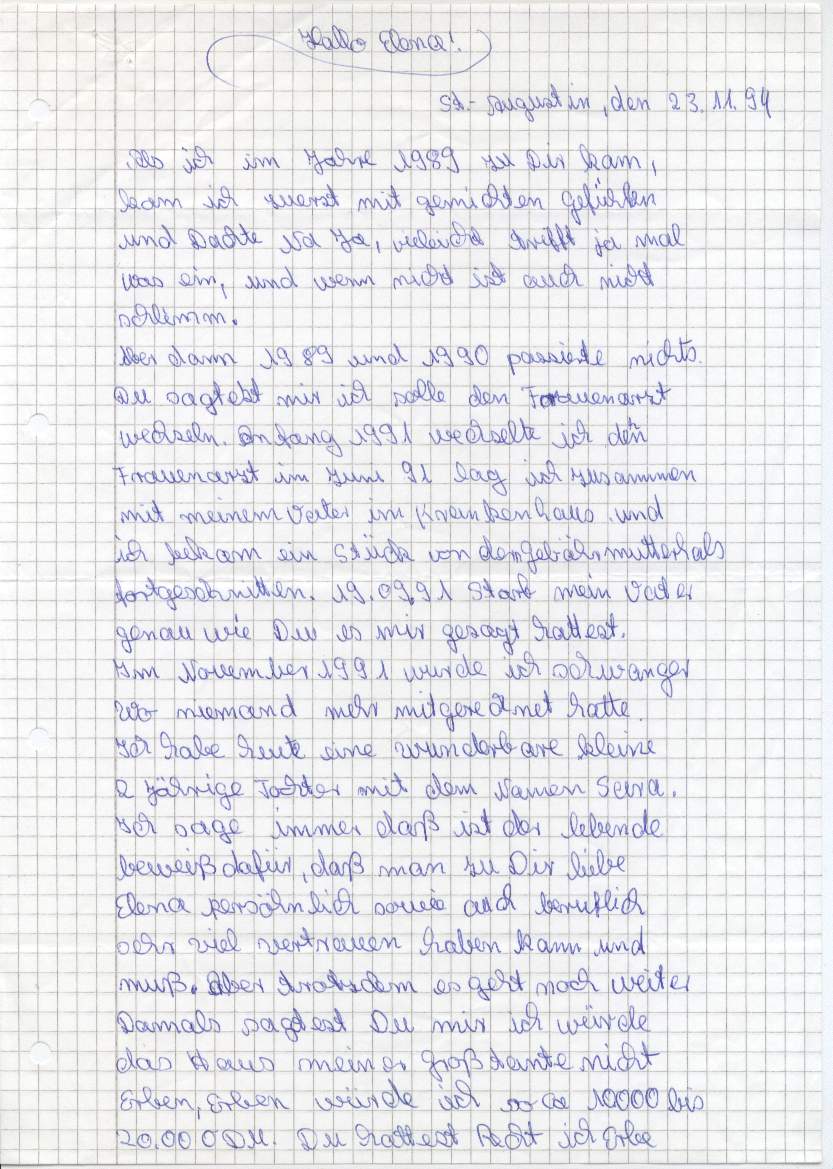 Hallo Elena!
St.-Augustin, den 23.11.94
Als ich im Jahre 1989 zu Dir kam,
kam ich zuerst mit gemichten gefühlen
und Dachte Na Ja, vieleicht trifft ja mal
was ein, und wenn nicht ist auch nicht
schlimm.
Aber dann 1989 und 1990 passierte nichts.
Du sagtest mir ich solle den Frauenarzt
wechseln. Anfang 1991 wechselte ich den
Frauenarzt im Juni 91 lag ich zusammen
mit meinem Vater im Krankenhaus und
ich bekam ein Stück von dem gebährmutterhals
fortgeschnitten. 19.09.91 Starb mein Vater
genau wie Du es mir gesagt hattest.
Im November 1991 wurde ich schwanger
wo niemand mehr mitgerechnet hatte.
Ich habe heute eine wunderbare kleine
2 jährige Tochter mit dem Namen Sara.
Ich sage immer daß ist der lebende
beweiß dafür, daß man zu Dir liebe
Elena persöhnlich sowie auch beruflich
sehr viel vertrauen haben kann und
muß. Aber trotzdem es geht noch weiter
Damals sagtest Du mir ich würde
das Haus meiner großtante nicht
Erben, Erben würde ich so ca 10000 bis
20.000 DM. Du hattest Recht ich Erbe